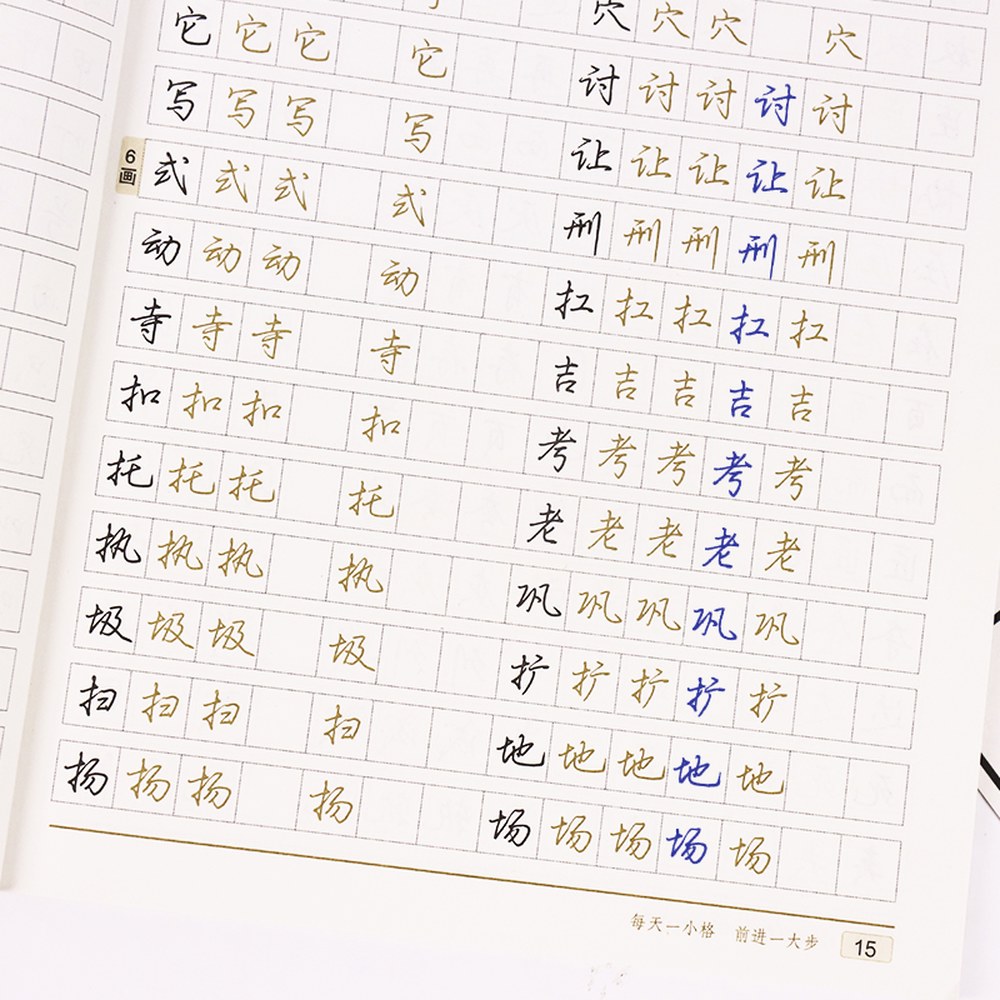 穴 穴 穴 穴
它 它 它 它 讨 讨 讨 讨 讨
写 写 写 写 让 让 让 让 让
6画
式 式 式 式 刑 刑 刑 刑 刑
动 动 动 动 扛 扛 扛 扛 扛
寺 寺 寺 寺 吉 吉 吉 吉 吉
扣 扣 扣 扣 考 考 考 考 考
托 托 托 托 老 老 老 老 老
执 执 执 执 巩 巩 巩 巩 巩
圾 圾 圾 圾 扩 扩 扩 扩 扩
扫 扫 扫 扫 地 地 地 地 地
扬 扬 扬 扬 场 场 场 场 场
每天一小格 前进一大步 15